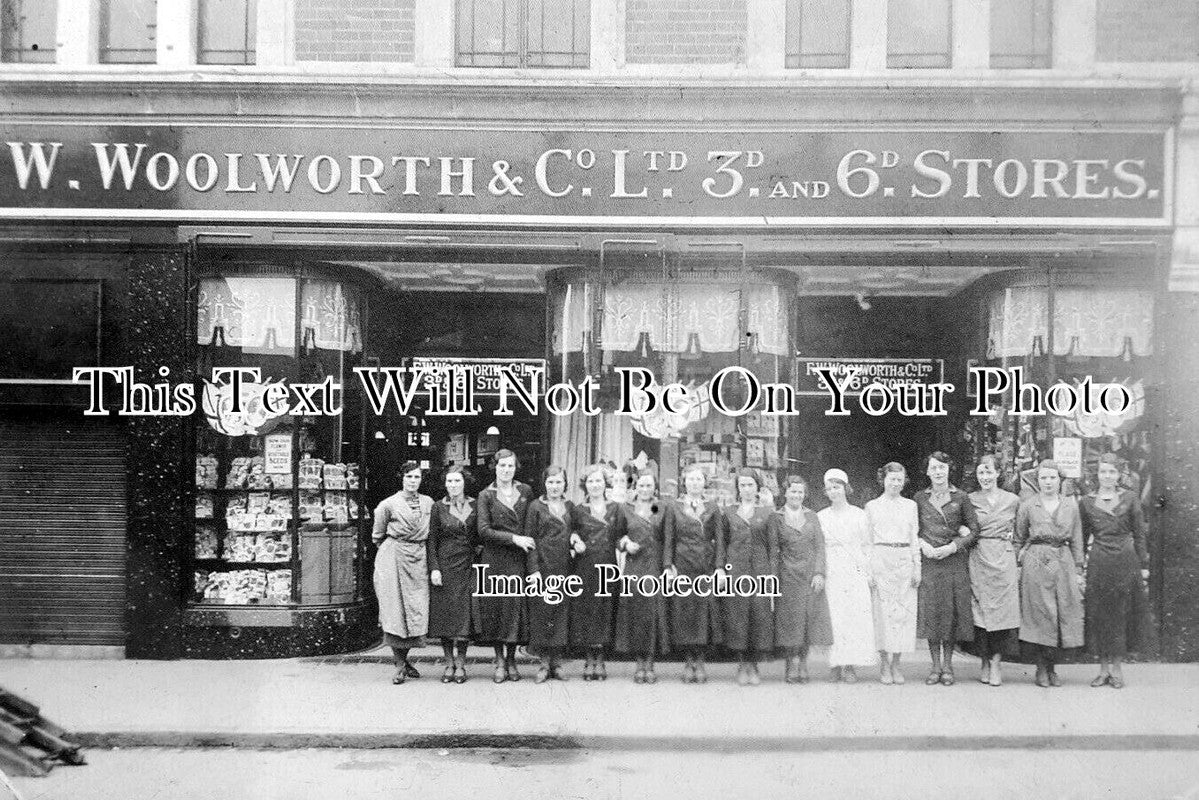 W. WOOLWORTH & Co. LTD. 3D. AND 6D. STORES.
F.W. WOOLWORTH & Co. LTD
3D & 6D STORES
F.W. WOOLWORTH & Co. LTD
3D & 6D STORES
This Text Will Not Be On Your Photo
SEEDS
Image Protection